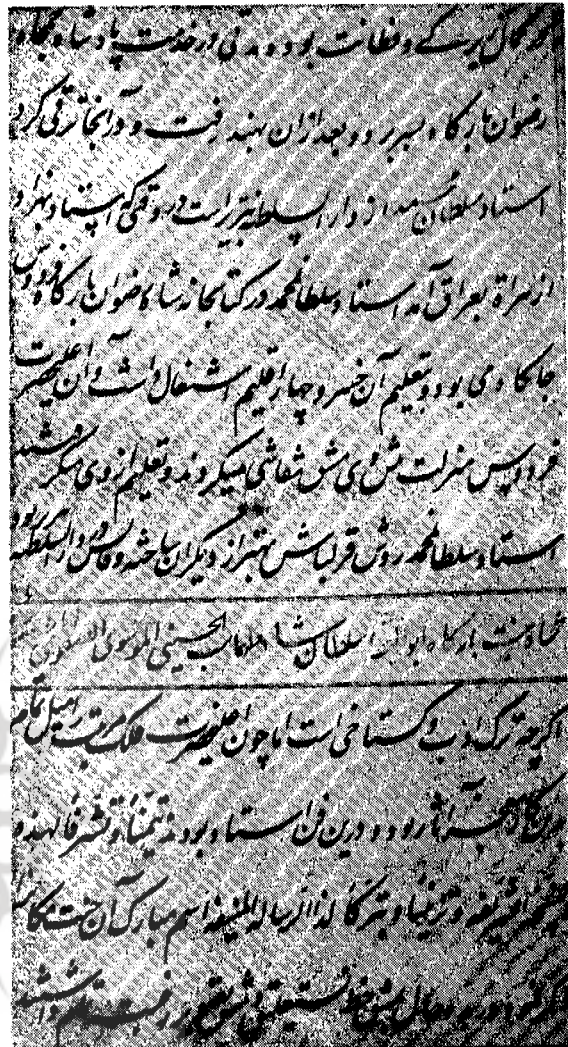 در کمال زیرکی و فطانت بود و مدتی در خدمت پادشاه
رضوان بارگاه بسر برد و بعد ازان بهند رفت و در آنجا ترقی کرد
استاد سلطان محمد از دار السلطنه تبریز است در وقتی که استاد بهزاد
از هراة بعراق آمد استاد سلطان محمد در کتابخانه شاه رضوان بارگاه فردوس
جاگاه می بود و تعلیم آن خسرو چهار اقلیم اشتغال داشت و آن اعلیحضرت
فردوس منزلت پیش وی مشق نقاشی میکردند و تعلیم از وی میگرفتند
استاد سلطان محمد روش قزلباش بهتر از دیگران ساخته وفاتش در دار السلطنه
بارگاه ابو السلطان شاه طهماسب الحسینی الموسوی الصفوی
اگرچه ترک ادب و گستاخی است اما چون اعلیحضرت فلک مرتبت را میل تمام
بود و درین فن استاد بودند تیمنا و تشرفا لهذه
و تزیینا و تبرکا لهذا الرساله المنیفه اسم مبارک آن جنت مکان را
بمشق خط نستعلیق و مشق داشتند